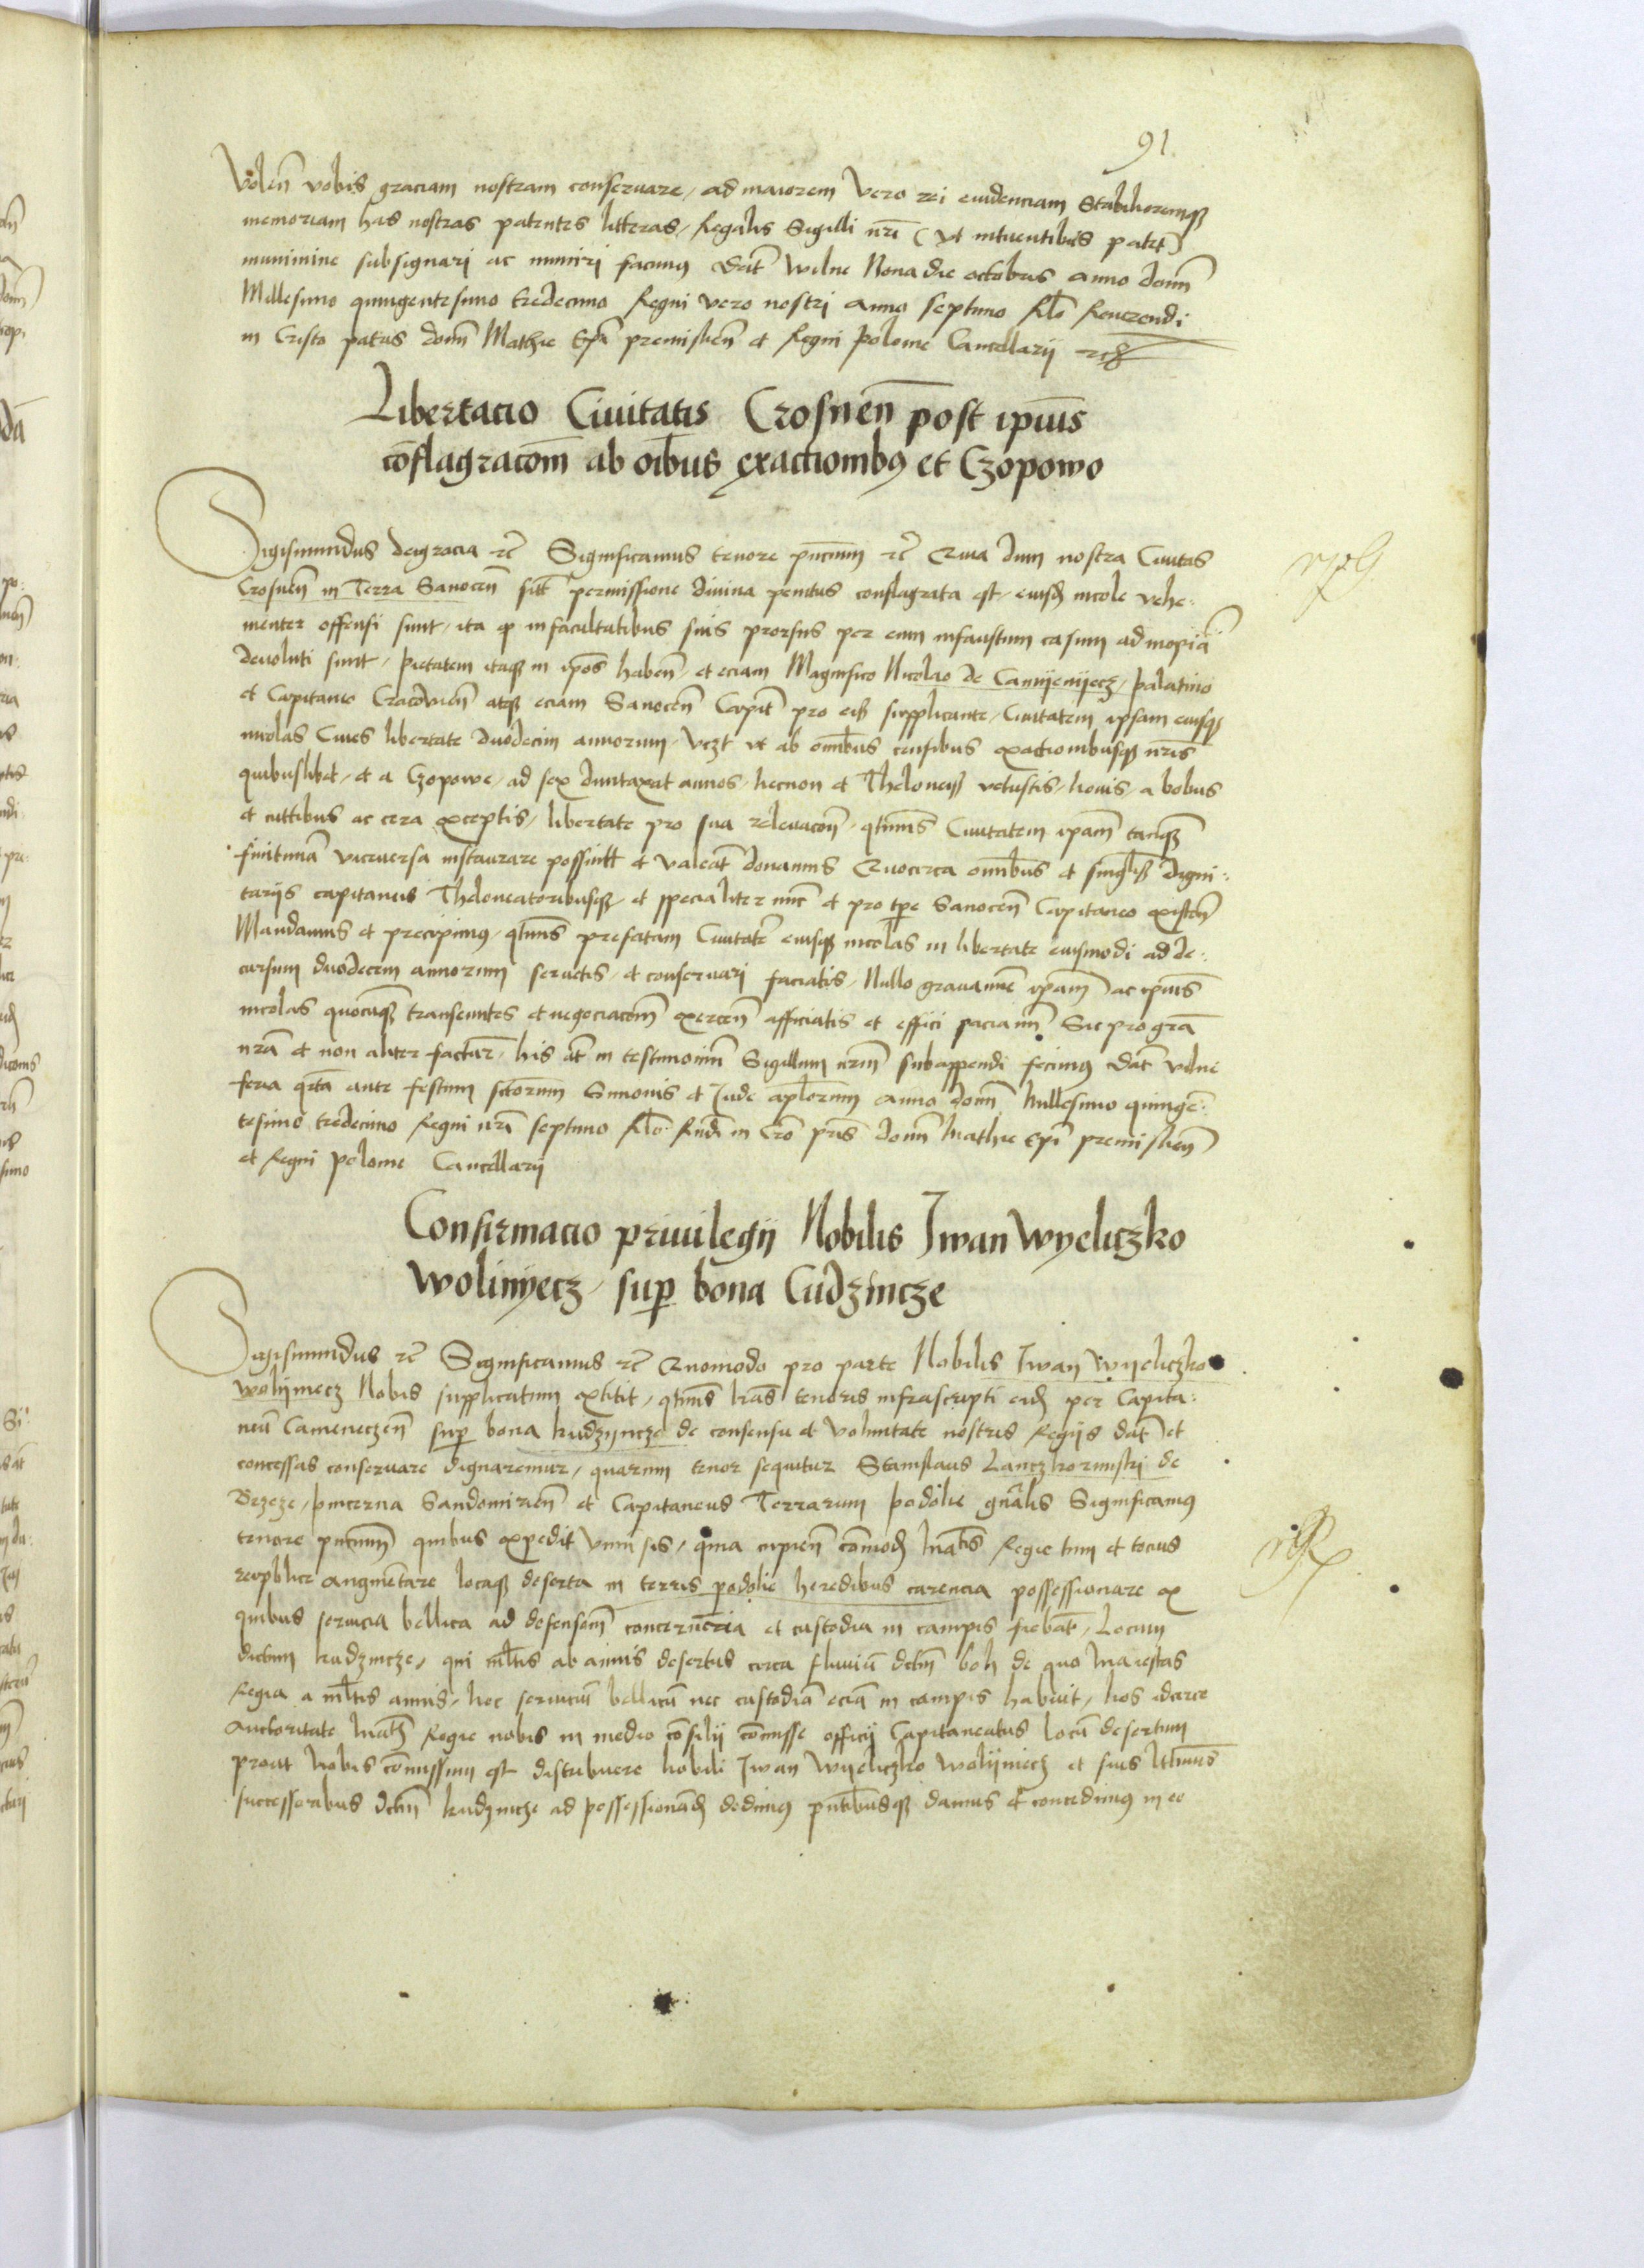 91
Volen̄ vobis graciam nostram conseruare, ad maiorem vero rei euidenciam Stabilioremqȝ
memoriam has nostras patentes litteras, Regalis Sigilli nr̄i (vt intuentibus patet)
munimine subsignari ac muniri facimus Dat̄ wilne Nona die octobris anno domī
Millesimo quingentesimo tredecimo Regni vero nostri anno septimo Rl̄o Reuerendi
in Cristo patris domī Mathie Ep̄i premislien̄ et Regni polonie Cancellarij
Libertacio Ciuitatis Crosnen̄ post ipīus
cōflagracōm̄ ab oībus exactionibȝ et Czopowo
Sigismundus deigracia ꝛc̄ Significamus tenore pn̄cium̄ ꝛc̄ Quia dum nostra Ciuitas
Crosnen̄ in Terra Sanocen̄ sitt̄ permissione diuina penitus conflagrata est, eiusdȝ incole vehe:
menter offensi sunt, ita ꝙ in facultatibus suis prorsus per eum infaustum casum ad inopiā
deuoluti sunt, pietatem itaqȝ in ip̄os haben̄, et eciam Magnifico Nicolao de Camijenijecz, palatino
et Capitaneo Cracouien̄ atqȝ eciam Sanocen̄ Capit̄ pro eiß supplicante, Ciuitatem ipsam eiusqȝ
incolas Ciues libertate duodecim annorum, vczt vt ab om̄ibus censibus exactionibusqȝ nr̄is
quibuslibet, et a Czopowe, ad sex duntaxat annos, necnon et Theloneiß vetustis, nouis, a bobus
et cuttibus ac cera exceptis, libertate pro sua releuacōn̄, qt̄inus Ciuitatem ipam̄ tanqȝ
finitimā viceuersa instaurare possint et valeāt donauimus Quocirca om̄ibus et singl̄iß digni:
tarijs capitaneis Theloneatoribusqȝ, et specialiter nūc et pro tp̄e Sanocen̄ Capitaneo existen̄
Mandamus et precipimus, qt̄inus prefatam Ciuitatē eiusqȝ incolas in libertate eiusmodi ad de:
cursum duodecim annorum seruetis, et conseruari faciatis, Nullo grauamīe ipam̄ ac ipīus
incolas quocūqȝ transeuntes et negociacōm̄ exercen̄ afficiatis et effici paciamī Sic pro gr̄a
nr̄a et non aliter factur̄, his āt in testimoniū Sigillum nr̄m subappendi fecimus Dat̄ vilne
feria qr̄ta ante festum sctōrum Simonis et Jude apl̄orum anno domī Millesimo quingē:
tesimo tredecimo Regni nr̄i septimo Rl̄o Rn̄di in Cr̄o pr̄is domī Mathie Ep̄i premislien̄
et Regni polonie Cancellarij
Confirmacio priuilegij Nobilis Iwan Wyeliczko
Wolinijecz, sup̄ bona Cudzincze
Sigismundus ꝛc̄ Significamus ꝛc̄ Quomodo pro parte Nobilis Iwan Wijeliczko
wolijniecz Nobis supplicatum extitit, qt̄inus lr̄as tenoris infrascripti eidȝ per Capita:
neū Cameneczen̄ sup̄ bona kudzijncze de consensu et voluntate nostris Regijs dat̄ et
concessas conseruare dignaremur, quarum tenor sequitur Stanislaus Lanczkorunski de
Brzeze, pincerna Sandomirien̄ et Capitaneus Terrarum podolie gn̄alis Significamus
tenore pn̄tium̄ quibus expedit vniu̅sis, quia cupien̄ cōmodȝ Mat̄is Regie tum et tocius
reipublice augmentare locaqȝ deserta in terris podolie heredibus carencia possessionare ex
quibus seruicia bellica ad defensam̄ concernēcia et custodia in campis fiebāt, Locum
dictum kudzincze, qui ml̄tis ab annis desertus circa fluuiū dctm̄ boh de quo Maiestas
Regia a ml̄tis annis, hoc seruiciū bellicū nec custodiā eciā in campis habuit, Nos idcirco
auctoritate Mat̄is Regie nobis in medio cōsilij cōmisse officij Capitaneatus locū desertum
prout Nobis cōmissum est distribuere Nobili Iwan Wijeliczko wolijniecz et suis ltīmis
successoribus dctm̄ kudzincze ad possessionādȝ dedimus pn̄tibusqȝ damus et concedimus in eo